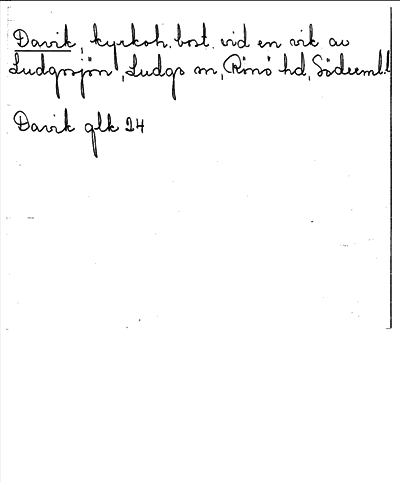 Davik, kyrkoh. bost. vid en vik av
Ludgosjön, Ludgo sn, Rönö hd, Söderml.
Davik glk 24